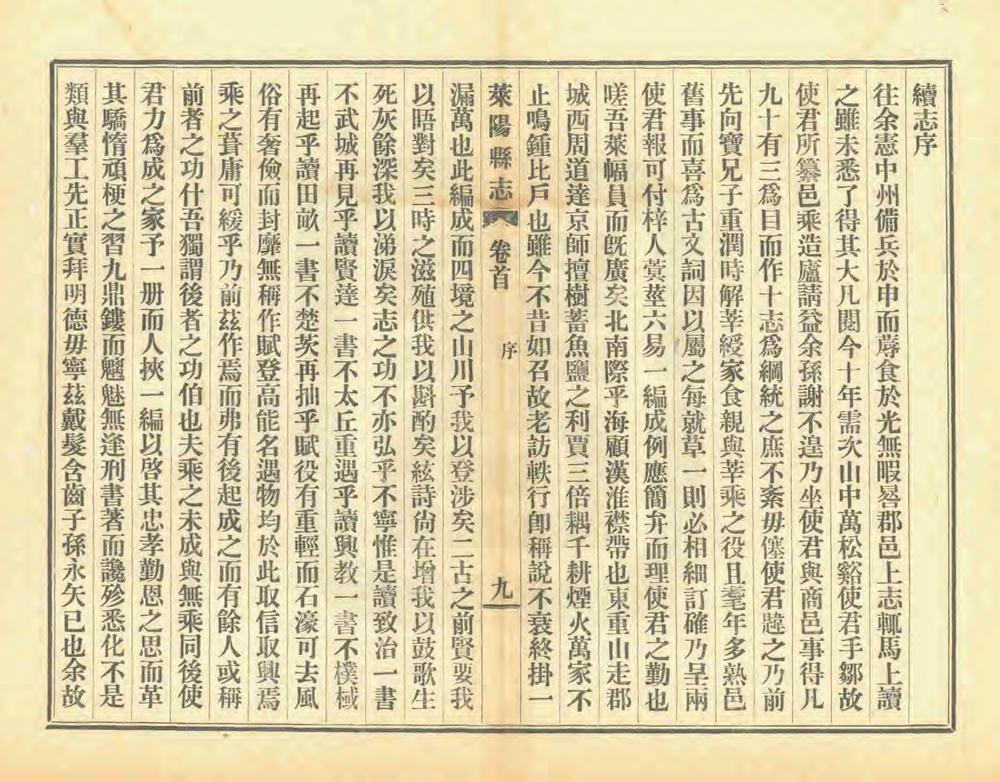 續志序
往余憲中州備兵於申而蓐食於光無暇晷郡邑上志輒馬上讀
之雖未悉了得其大凡閱今十年需次山中萬松谿使君手鄒故
使君所纂邑乘造廬請益余孫謝不遑乃坐使君與商邑事得凡
九十有三爲目而作十志爲綱統之庶不紊毋僿使君韙之乃前
先向寶兄子重潤時解莘綬家食親與莘乘之役且耄年多熟邑
舊事而喜爲古文詞因以屬之每就草一則必相細訂確乃呈兩
使君報可付梓人蓂莖六易一編成例應簡弁而理使君之勤也
嗟吾萊幅員而旣廣矣北南際乎海顧漢淮襟帶也東重山走郡
城西周道達京師擅樹蓄魚鹽之利賈三倍耦千耕煙火萬家不
止鳴鍾比戶也雖今不昔如召故老訪軼行卽稱說不衰終掛一
萊陽縣志 卷首 序 九
漏萬也此編成而四境之山川予我以登涉矣二古之前賢要我
以晤對矣三時之滋殖供我以斟酌矣絃詩尙在增我以鼓歌生
死灰餘深我以涕淚矣志之功不亦弘乎不寧惟是讀致治一書
不武城再見乎讀賢達一書不太丘重遇乎讀興敎一書不樸棫
再起乎讀田畝一書不楚茨再抽乎賦役有重輕而石濠可去風
俗有奢儉而封靡無稱作賦登高能名遇物均於此取信取興焉
乘之葺庸可緩乎乃前茲作焉而弗有後起成之而有餘人或稱
前者之功什吾獨謂後者之功伯也夫乘之未成與無乘同後使
君力爲成之家予一册而人挾一編以啓其忠孝勤恩之思而革
其驕惰頑梗之習九鼎鏤而魑魅無逢刑書著而讒殄悉化不是
類與羣工先正實拜明德毋寧茲戴髮含齒子孫永矢已也余故